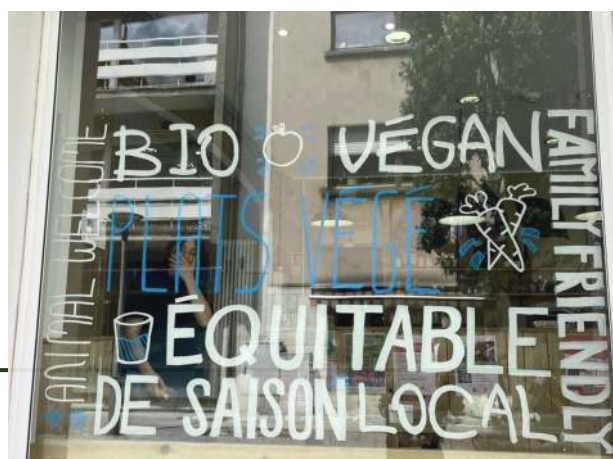 ANIMAL WELCOME
BIO VÉGAN
PLATS VÉGÉ
ÉQUITABLE
DE SAISON LOCAL
FAMILY FRIENDLY